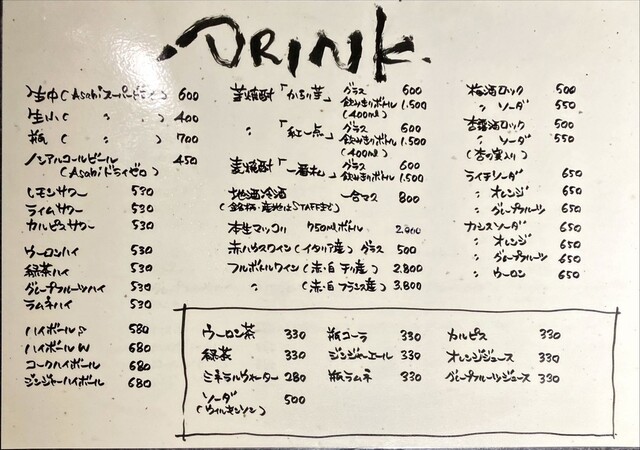 DRINK
生中(Asahiスーパードライ) 600
生小( 〃 ) 400
瓶 ( 〃 ) 700
ノンアルコールビール 450
(Asahiドライゼロ)
レモンサワー 530
ライムサワー 530
カルピスサワー 530
ウーロンハイ 530
緑茶ハイ 530
グレープフルーツハイ 530
ラムネハイ 530
ハイボールS 580
ハイボールW 680
コークハイボール 680
ジンジャーハイボール 680
芋焼酎「からり芋」グラス 600
飲みきりボトル 1.500
(400ml)
〃 「紅一点」グラス 600
飲みきりボトル 1.500
(400ml)
麦焼酎「一番札」グラス 600
飲みきりボトル 1.500
地酒冷酒 一合マス 800
(銘柄・産地はSTAFFまで)
本生マッコリ 750mlボトル 2.000
赤ハウスワイン(イタリア産)グラス 500
フルボトルワイン(赤・白 チリ産) 2.800
〃 (赤・白 フランス産) 3.800
梅酒ロック 500
〃 ソーダ 550
杏露酒ロック 500
〃 ソーダ 550
(杏の実入り)
ライチソーダ 650
〃 オレンジ 650
〃 グレープフルーツ 650
カシスソーダ 650
〃 オレンジ 650
〃 グレープフルーツ 650
〃 ウーロン 650
ウーロン茶 330
緑茶 330
ミネラルウォーター 280
ソーダ 500
(ウィルキンソン)
瓶コーラ 330
ジンジャーエール 330
瓶ラムネ 330
カルピス 330
オレンジジュース 330
グレープフルーツジュース 330